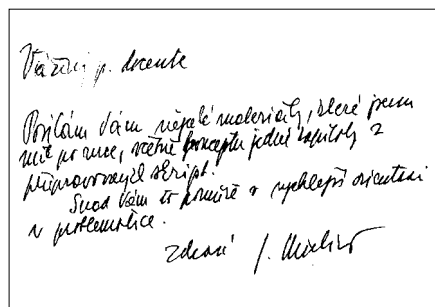 Vážený p. docente
Posílám Vám nějaké materiály, které jsem
měl po ruce, včetně konceptu jedné kapitoly z
připravovaných skript.
Snad Vám to pomůže v rychlejší orientaci
v problematice.
Zdraví J.